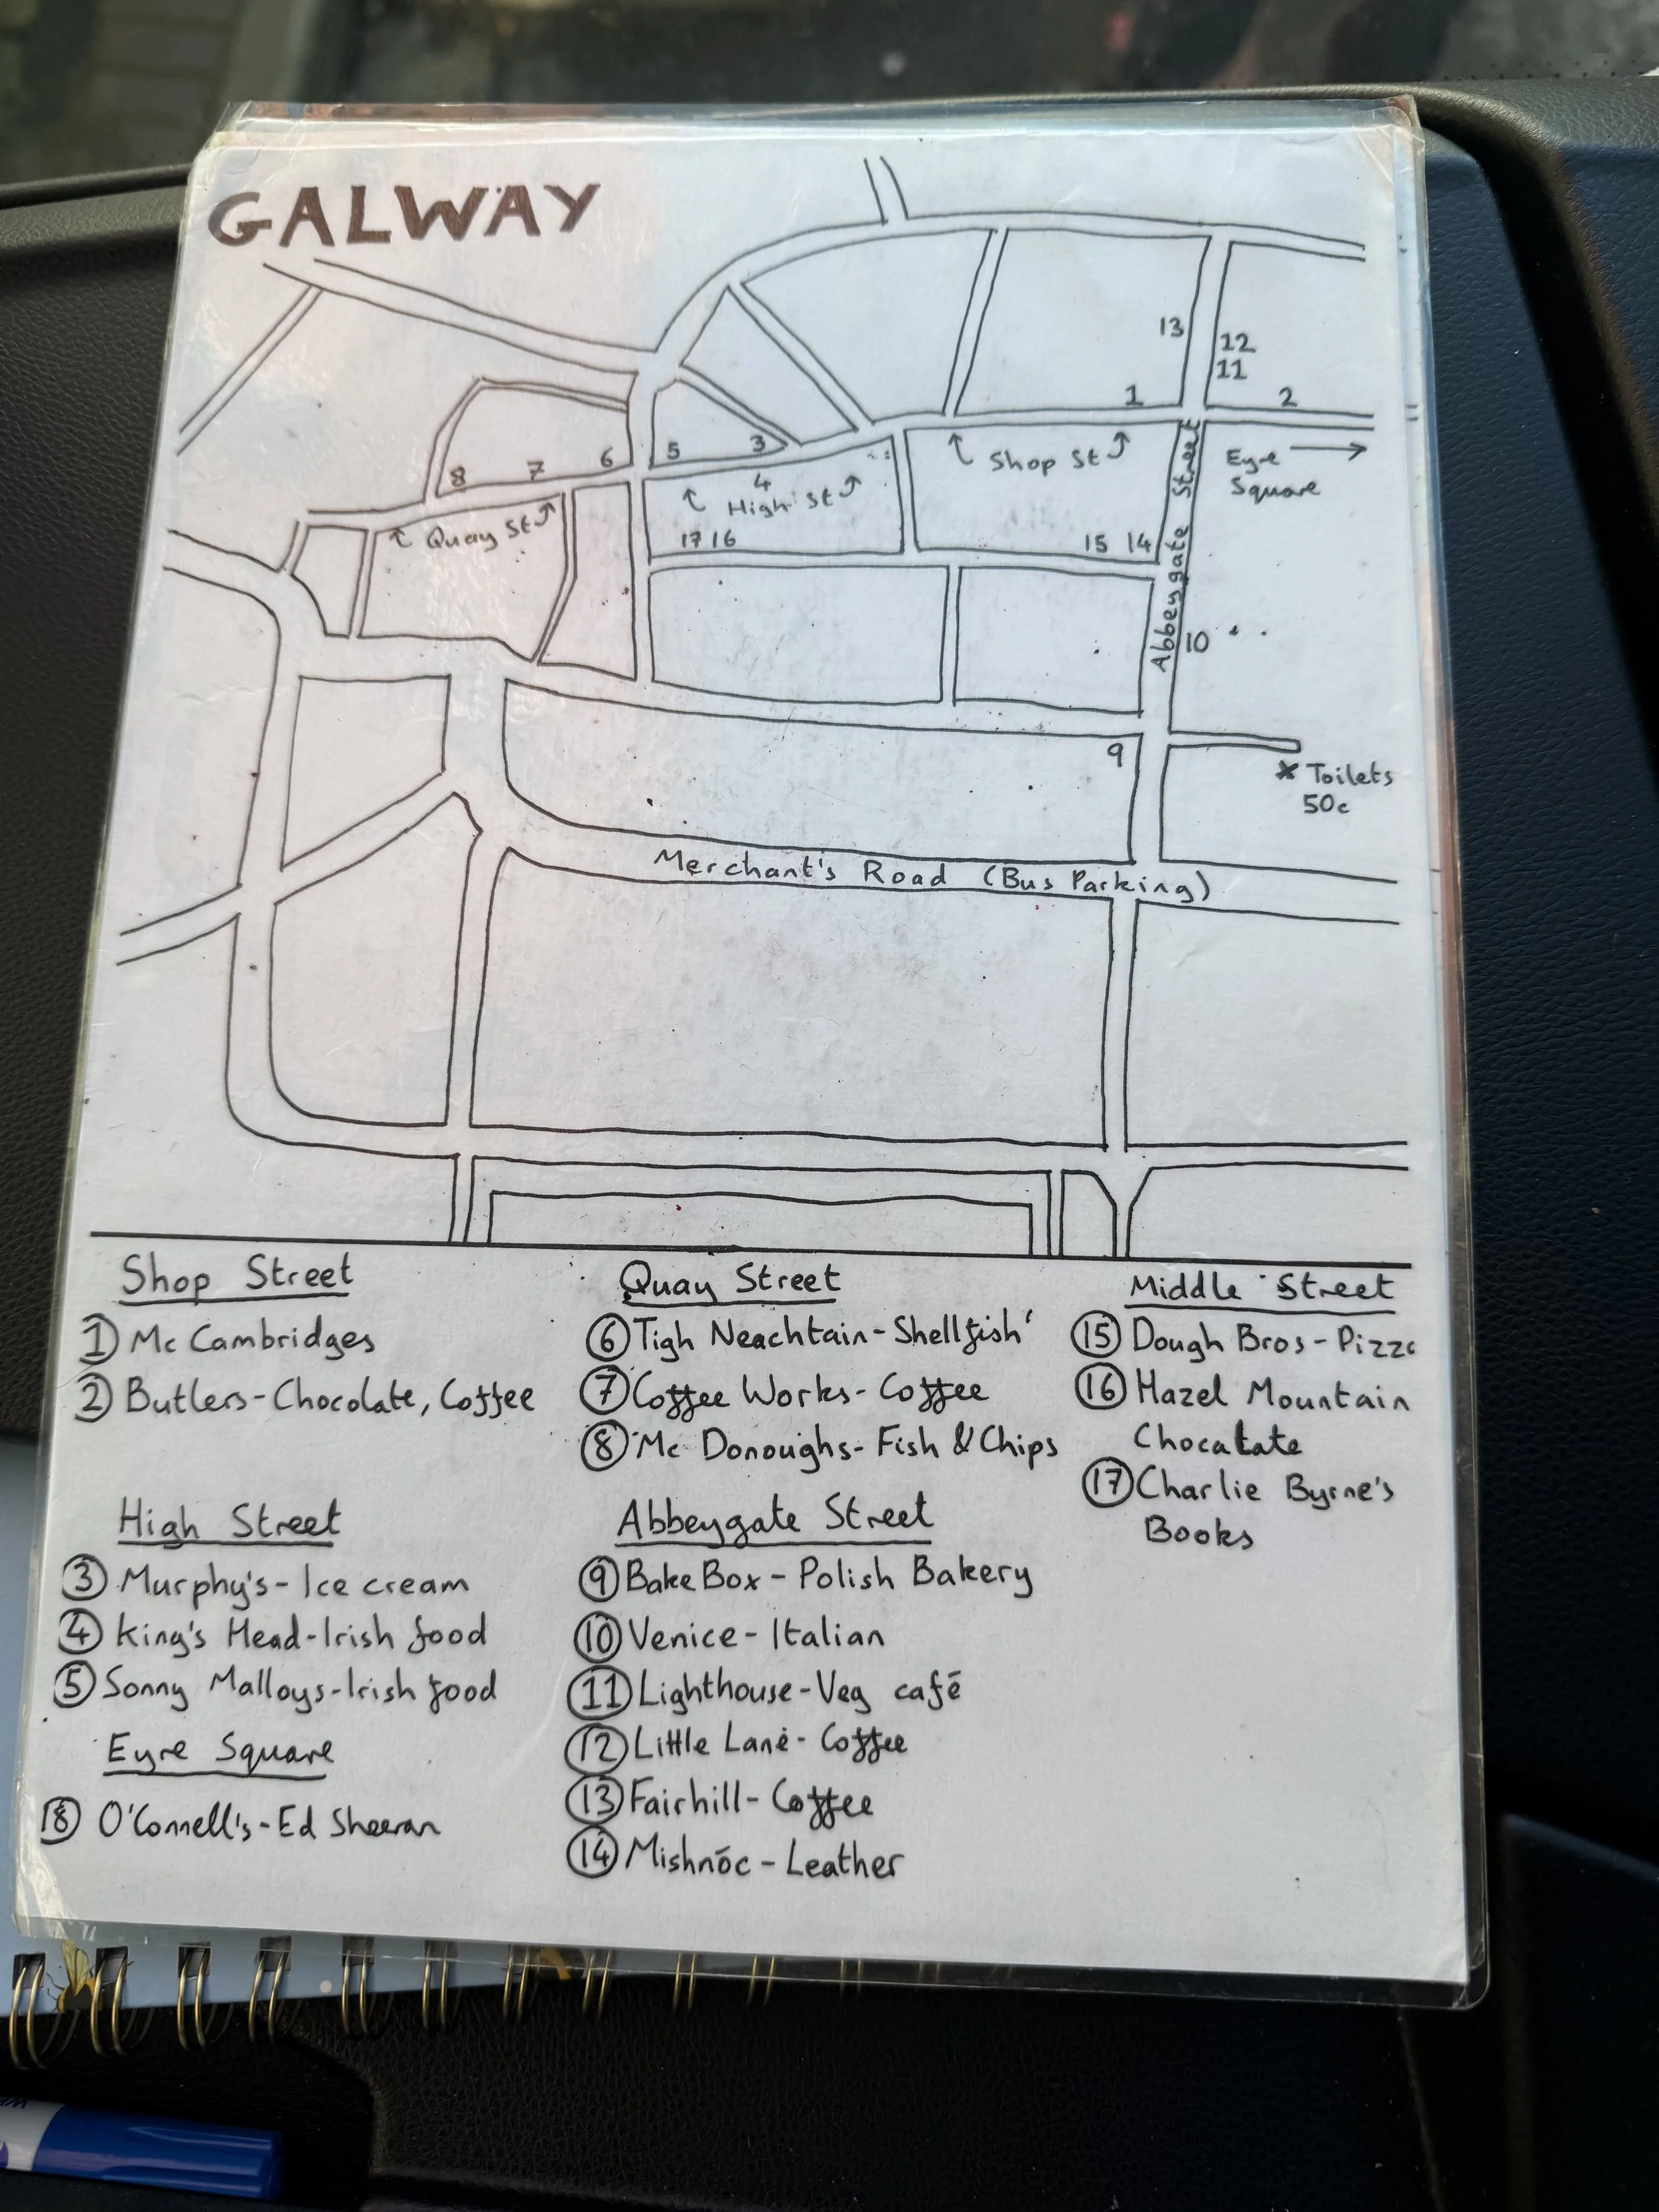 GALWAY
13
12
11
1
2
Shop St
Eyre
Square
Abbeygate Street
5
3
6
7
8
4
High St
Quay St
17 16
15 14
10
9
Toilets
50c
Merchant's Road (Bus Parking)
Shop Street
1 Mc Cambridges
2 Butlers-Chocolate, Coffee
High Street
3 Murphy's- Ice cream
4 King's Head-Irish food
5 Sonny Malloys-Irish food
Eyre Square
18 O'Connell's-Ed Sheeran
Quay Street
6 Tigh Neachtain-Shellfish
7 Coffee Works- Coffee
8 Mc Donoughs- Fish & Chips
Abbeygate Street
9 Bake Box - Polish Bakery
10 Venice- Italian
11 Lighthouse-Veg café
12 Little Lane- Coffee
13 Fairhill- Coffee
14 Mishnóc - Leather
Middle Street
15 Dough Bros - Pizza
16 Hazel Mountain
Chocalate
17 Charlie Byrne's
Books